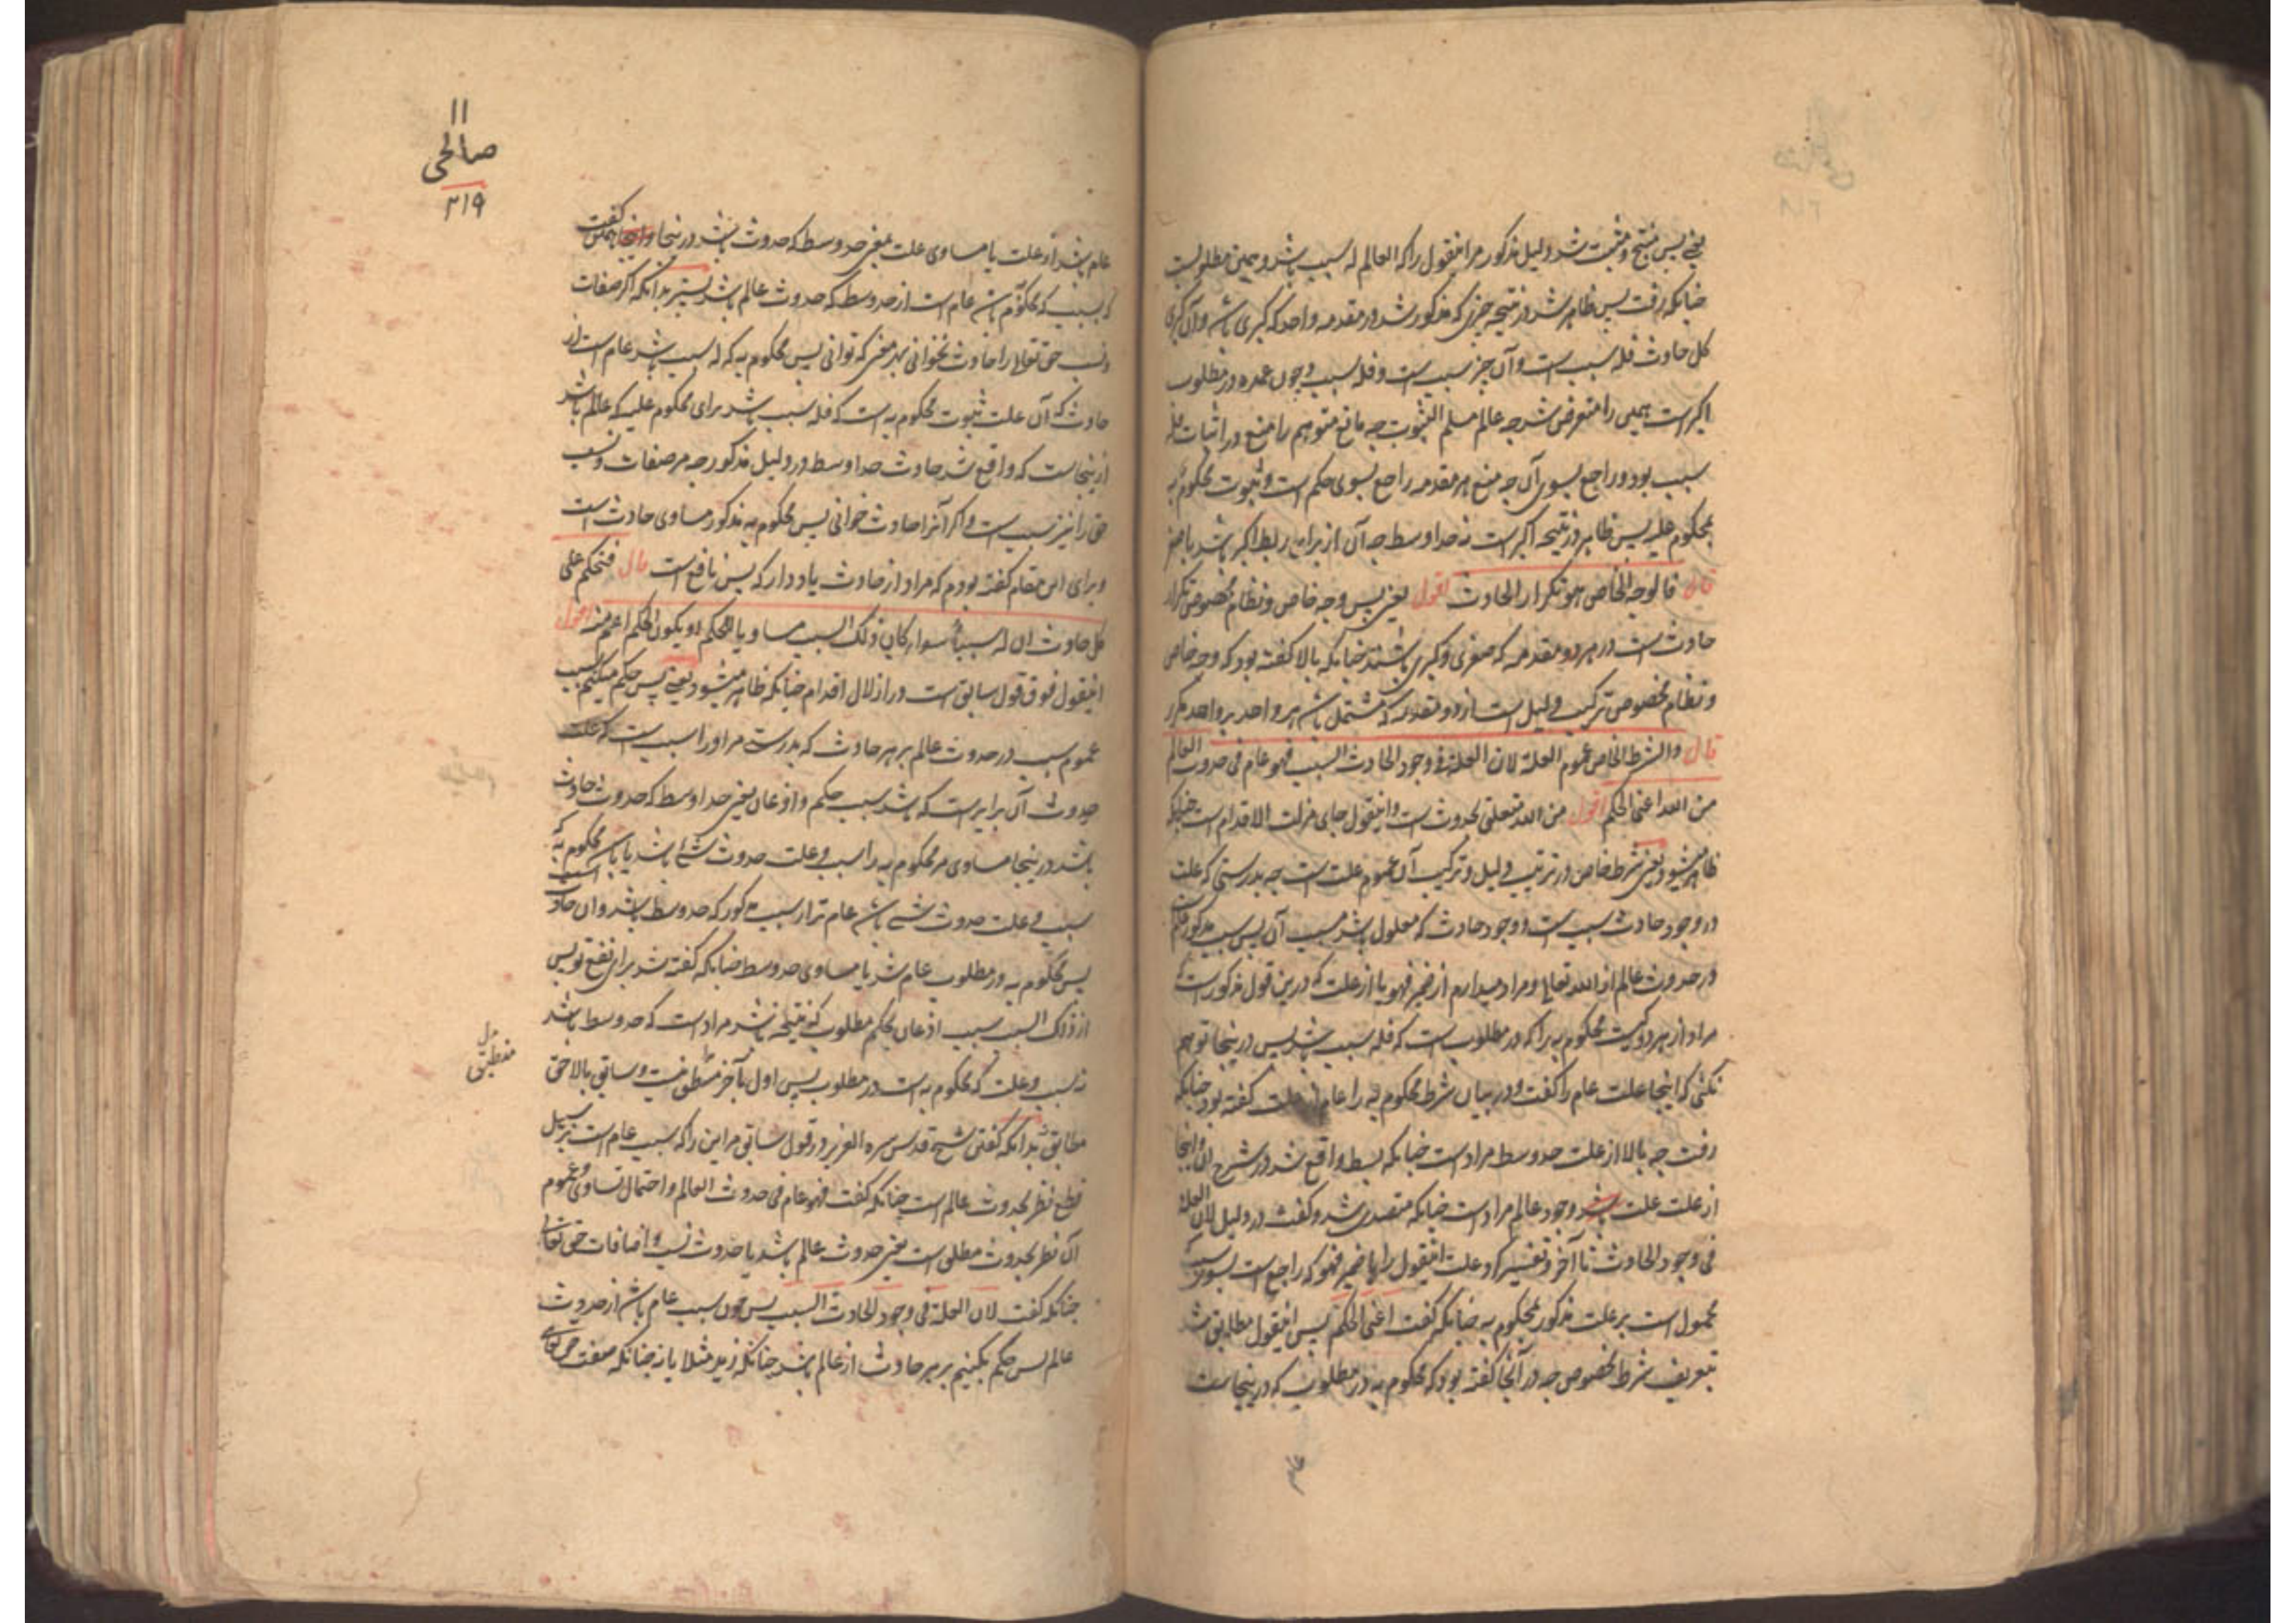 یعنی پس منتج و مثبت شد دلیل مذکور مر اینقول را که العالم له سبب باشد و همین مطلوبست
چنانکه رفت پس ظاهر شد در نتیجه چیزی که مذکور شد در مقدمه واحد که کبری باشد و آن کبری
کل حادث فله سبب است و آن چیز سبب است و فله سبب و چون عمده در مطلوب
اکبر است همین را متعرض شد چه عالم مسلم الثبوت چه مانع متوهم را منع در اثبات فله
سبب بود و راجع بسوی آن چه منع هر مقدمه راجع بسوی حکم است و ثبوت محکوم به
بمحکوم علیه پس ظاهر در نتیجه اکبر است نه حد اوسط چه آن از برای ربط اکبر باشد باصغر
قال فالوجه الخاص هو تکرار الحادث اقول یعنی پس وجه خاص و نظام مخصوص تکرار
حادث است در هر دو مقدمه که صغری و کبری باشند چنانکه بالا گفت بود که وجه خاص
و نظام مخصوص ترکیب دلیل است از دو مقدمه که مشتمل باشد هر واحد بر واحد مکرر
قال والشرط الخاص عموم العلة لان العلة فی وجود الحادث السبب فهو عام فی حدوث العالم
من الله اعنی الحکم اقول من الله متعلق بحدوث است و اینقول جای مزلت الاقدام است چنانکه
ظاهر میشود یعنی شرط خاص در ترتیب دلیل و ترکیب آن عموم علت است چه بدرستی که علت
در وجود حادث سبب است و وجود حادث که معلول باشد مسبب آن پس سبب مذکور عام
در حدوث عالم از الله تعالی و مراد میدارم از ضمیر فهو یا از علت که درین قول مذکور است
مراد از هر دو کیست محکوم به را که در مطلوب است که فله سبب باشد پس درینجا توهم
نکنی که اینجا علت عام را گفت و در بیان شرط محکوم به را عام از علت گفته بود چنانکه
رفت چه بالا از علت حد وسط مراد است چنانکه بسط واقع شد در شرح آن و اینجا
از علت علت وجود عالم مراد است چنانکه متصدی شد و گفت در دلیل لان العلة
فی وجود الحادث تا آخر و تفسیر کرد علت اینقول را با ضمیر فهو که راجع است بسوی سبب که
محمول است بر علت مذکور محکوم به چنانکه گفت اعنی الحکم پس اینقول مطابق شد
بتعریف شرط مخصوص چه در آنجا گفته بود که محکوم به در مطلوب که درینجاست
۱۱
صالحی
۲۱۹
عام باشد از علت یا مساوی علت یعنی حد وسط که حدوث باشد درینجا و اینجا همین گفت
که سبب که محکوم به باشد عام است از حد وسط که حدوث عالم باشد بستر بدانکه اگر صفات
و نسب حق تعالی را حادث نخوانی بهر معنی که توانی پس محکوم به که له سبب باشد عام است از
حادث که آن علت ثبوت محکوم به است که فله سبب باشد برای محکوم علیه که عالم باشد
ازینجاست که واقع شد حادث حد اوسط در دلیل مذکور چه مر صفات و نسب
حق را نیز سبب است و اگر آنرا حادث خوانی پس محکوم به مذکور مساوی حادث است
و برای این مقام گفته بودم که مراد از حادث یاد دار که بس نافع است قال فنحکم علی
کل حادث ان له سببا سواء کان ذلک السبب مساویا للحکم او یکون الحکم اعم منه اقول
اینقول فوق قول سابق است در ازلال اقدام چنانکه ظاهر میشود یعنی پس حکم میکنیم بسبب
عموم سبب در حدوث عالم بر هر حادث که بدرستی مر او را سبب است که علت
حدوث آن برابر است که باشد سبب حکم و اذعان یعنی حد اوسط که حدوث حادث
باشد درینجا مساوی مر محکوم به را سبب و علت حدوث شئ باشد یا باشد محکوم به که
سبب و علت حدوث شئ باشد عام تر از سبب مذکور که حد وسط باشد و آن حادث است
پس محکوم به در مطلوب عام شد یا مساوی حد وسط چنانکه گفته شد برای نفع تو پس
از ذلک السبب سبب اذعان بحکم مطلوب که نتیجه باشد مراد است که حد وسط باشد
نه سبب و علت که محکوم به است در مطلوب پس اول بآخر منطبق نیست و سابق بالاحق
مطابق بدانکه گفتن شیخ قدس سره العزیز در قول سابق مر این را که سبب عام است بر سبیل
قطع نظر بحدوث عالم است چنانکه گفت فهو عام فی حدوث العالم و احتمال تساوی و عموم
آن نظر بحدوث مطلق است یعنی حدوث عالم باشد یا حدوث نسب و اضافات حق تعالی
چنانکه گفت لان العلة فی وجود الحادث السبب پس چون سبب عام باشد از حدوث
عالم پس حکم بکنیم بر هر حادث از عالم باشد چنانکه زید مثلا یا نه چنانکه صفت حق تعالی